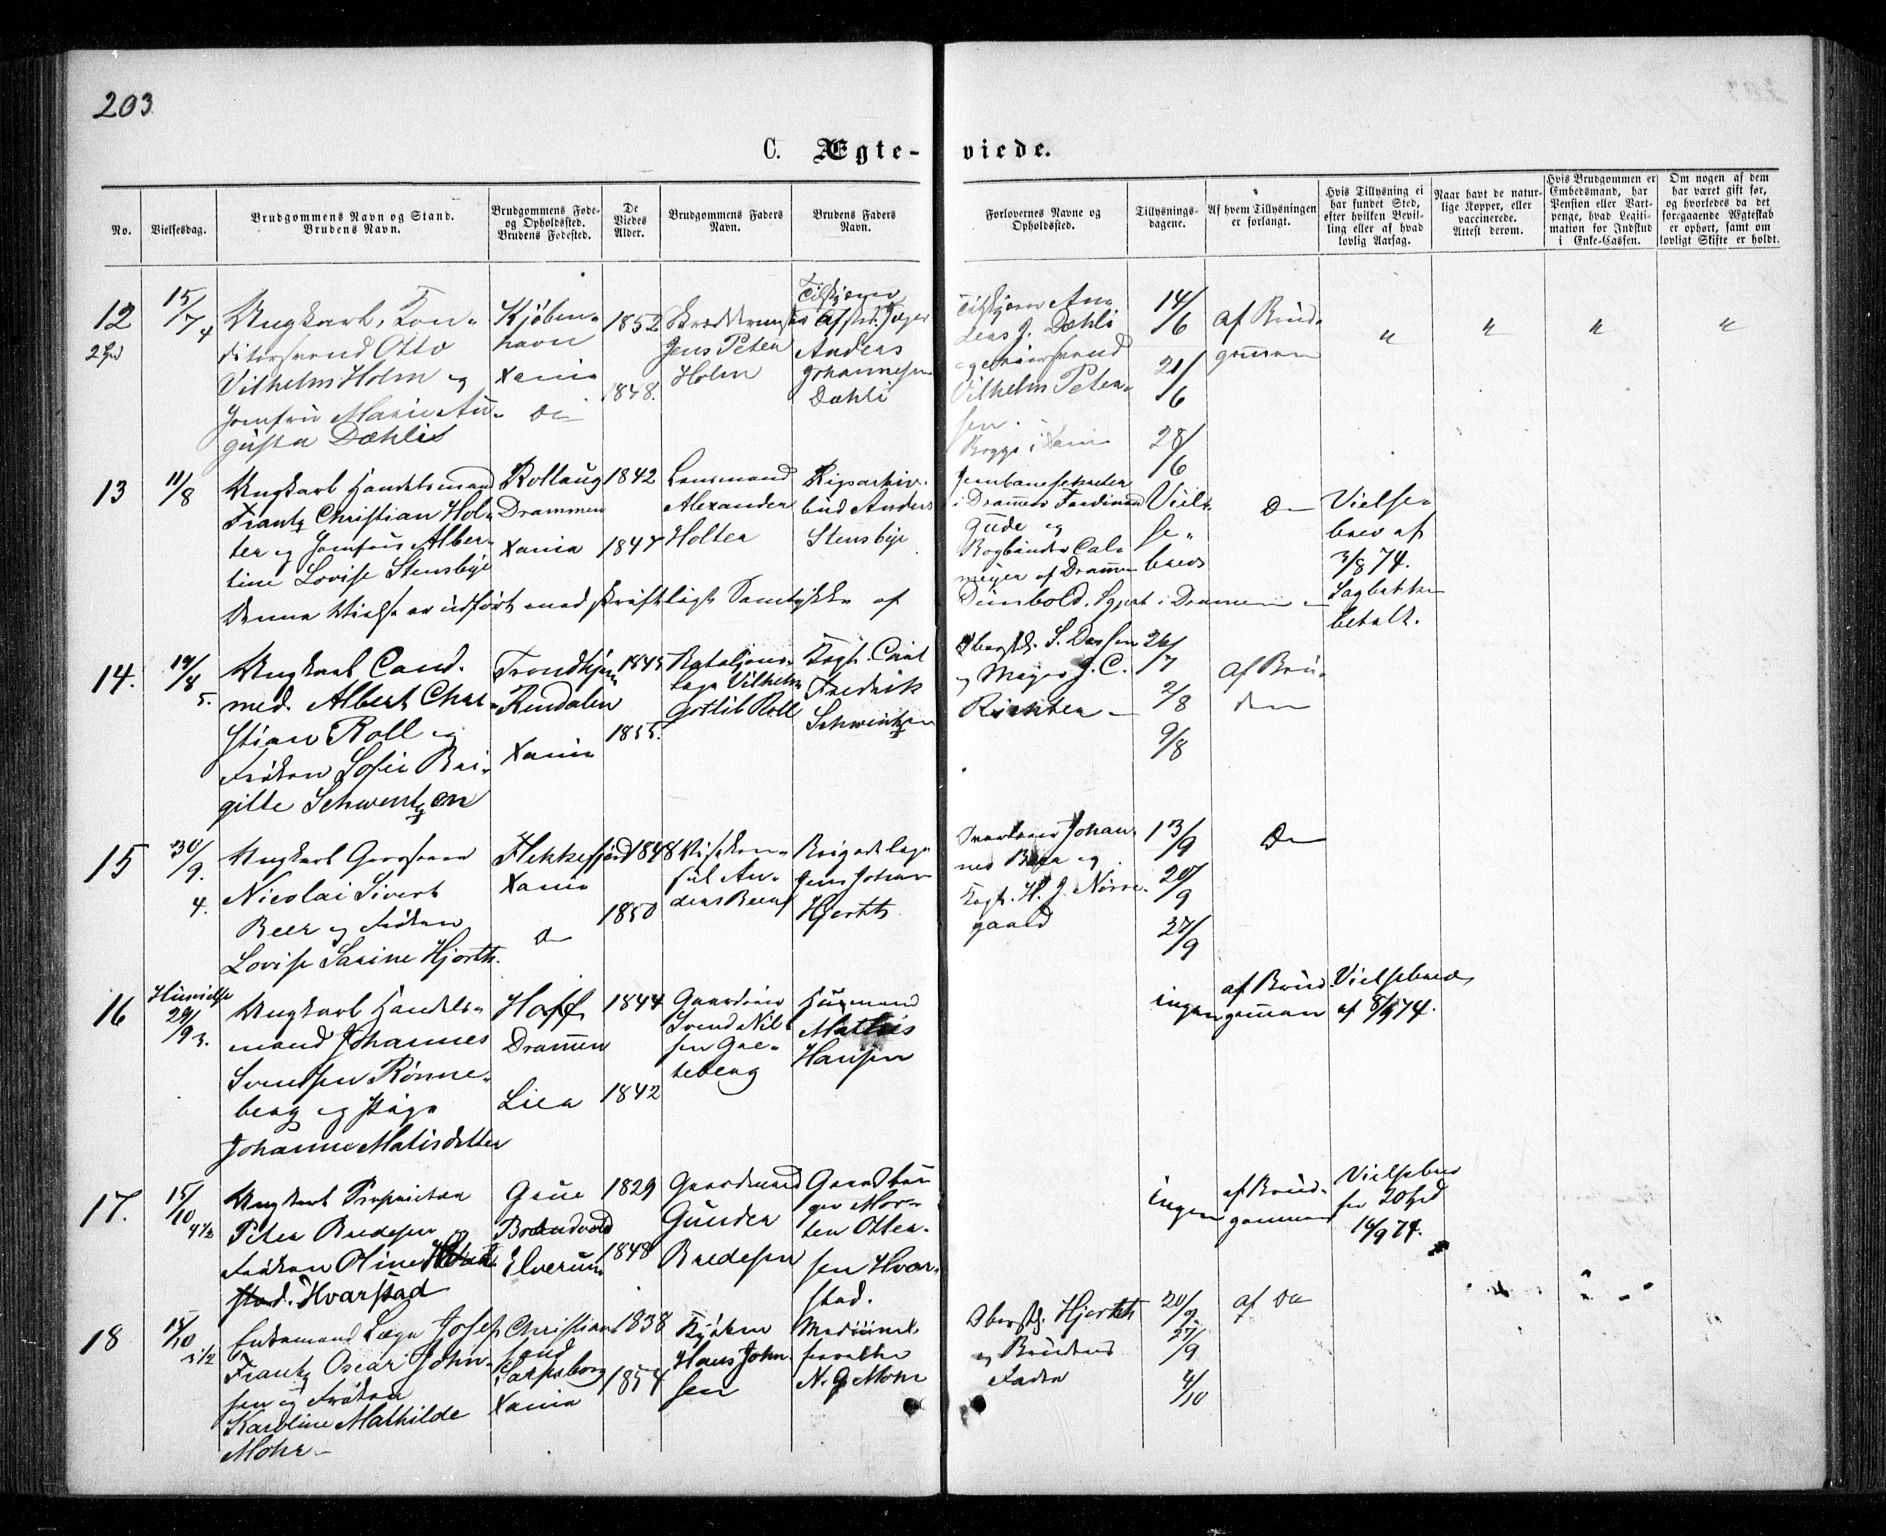 203
C. Ægte- viede.
No.
Vielsesdag.
Brudgommens Navn og Stand.
Brudens Navn.
Brudgommens Føde-
og Opholdssted.
Brudens Fødested.
De
Viedes
Alder.
Brudgommens Faders
Navn.
Brudens Faders
Navn.
Forlovernes Navne og
Opholdssted.
Tillysnings-
dagene.
Af hvem Tillysningen
er forlangt.
Hvis Tillysning ei
har fundet Sted,
efter hvilken Bevil-
ling eller af hvad
lovlig Aarsag.
Naar havt de natur-
lige Kopper, eller
vaccinerede.
Attest derom.
Hvis Brudgommen er
Embedsmand, har
Pension eller Vart-
penge, hvad Legiti-
mation for Indskud
i Enke-Cassen.
Om nogen af dem
har været gift før,
og hvorledes da det
foregaaende Ægteskab
er ophørt, samt om
lovligt Skifte er holdt.
12
15/7 4
Ungkarl, Kon-
ditorsvend Otto
Vilhelm Holm og
Jomfru Marie Au-
gusta Dæhli
Kjøben-
havn
Xania
Do
1852
1848.
Jens Peter
Holm
Anders
Johannesen
Dæhli
An-
ders J. Dæhli
Vilhelm Peter-
sen.
Begge i Xania
14/6
21/6
28/6
af Brud-
gommen
" " " "
13
11/8
Ungkarl Handelsmand
Frantz Christian Hol-
ter og Jomfru Alber-
tine Lovise Stensbye
Rollaug
Drammen
Xania
1842
1847
Lensmand
Alexander
Holter
Rigsarkiv-
bud Anders
Stensbye
i Drammen Ferdinand
Gude og
Bogbinder Cal-
meyer af Drammen
Viel-
se-
brev
Do
Vielse-
brev af
3/8 74.
betalt.
Denne Vielse er udført med skriftligt Samtykke af
14.
14/8 5.
Ungkarl Cand.
med. Albert Chri-
stian Roll og
Frøken Sofie Bri-
gitte Schwentzen
Trondhjem
Rendalen
Xania
1845
1855.
Bataljons-
læge Vilhelm
Gotlib Roll
Kapt. Carl
Fredrik
Schwentzen
S. Dessen
og Major J. C.
Richter
26/7
2/8
9/8
af Bru-
den
15
30/9. 4.
Ungkarl Grosserer
Nicolai Sivert
Beer og Frøken
Lovise Sarine Hjorth.
Flekkefjord
Xania
Do
1848
1850
Visekon-
sul An-
ders Beer
Brigadelæge
Jens Johan
Hjorth
Johan-
nes Beer og
Kapt. H. J. Nørre-
gaard
13/9
20/9
27/9
Do
16
Husvielse
29/9 3.
Ungkarl Handels-
mand Johannes
Svendsen Rønne-
berg og Pige
Johanne Matisdatter
Hoff
Drammen
Lier
1844
1842
Gaardeier
Svend Nil-
sen
Husmand
Mathis
Hansen
ingen
af Brud-
gommen
Vielsebrev
af 8/9 74.
17.
15/10 4 1/2
Ungkarl Proprietær
Peter Bredesen og
Frøken Oline
stad. Hvarstad
Grue
Brandvold
Elverum
1829
1848
Gaardmand
Gunder
Bredesen
Gaardbru-
ger Mor-
ten Otter-
sen Hvar-
stad.
ingen
af Brud-
gommen
Vielsebrev
for 20 Spd
14/9 74.
18
15/10 5 1/2
Enkemand Læge Josef
Frantz Oscar John-
sen og Frøken
Karoline Mathilde
Mohr
Christian-
sand
Sarpsborg
Xania
1838
1854
Hans John-
sen
N. G. Mohr
Oberstl. Hjorth
og Brudens
Fader
20/9
27/9
4/10
af Do